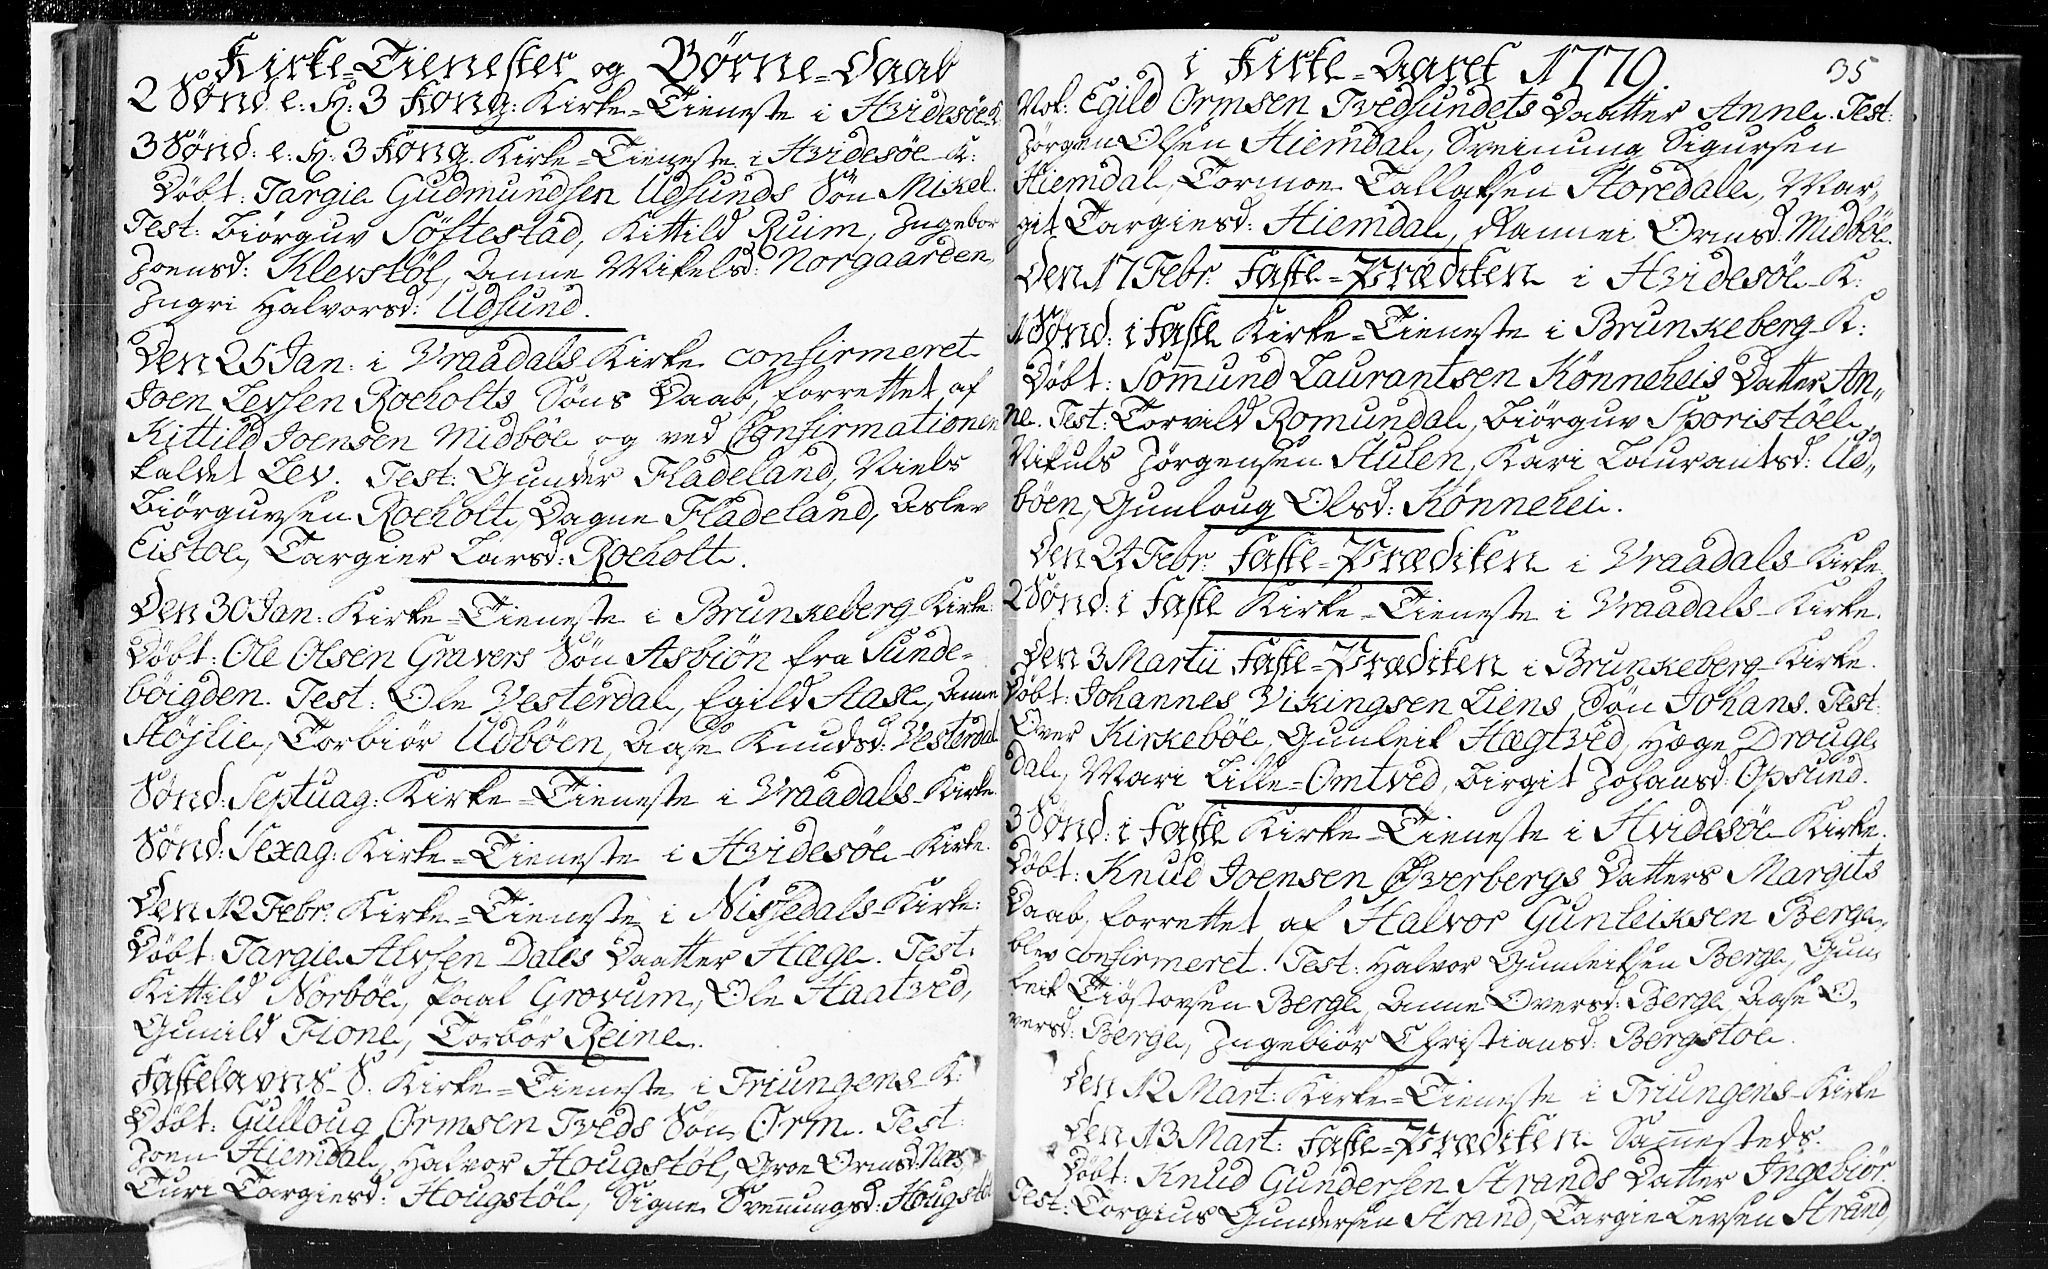 Kirke-Tienester og Börne-Daab
2 Sönd. e. H. 3 Kong. Kirke-Tieneste i Hvidesöe K.
3 Sönd: e: H: 3 Kong. Kirke-Tieneste i Hvidesöe K:
Döbt: Targie Gudmundsen Udsunds Sön Mikel.
Test: Biörguv Söftestad, Kittild Ruim, Ingebor
Joensd: Klevstöl, Anne Mikelsd: Norgaarden,
Ingri Halvorsd: Udsund.
Den 25 Jan: i Vraadals Kirke confirmeret
Joen Levsen Roeholts Söns Daab, forrettet af
Kittild Joensen Midböe og ved Confirmationen
kaldet Lev. Test: Gunder Fladeland, Niels
Biörguvsen Roeholt, Dagne Fladeland, Aslev
Eistoe, Targier Larsd: Roeholt.
Den 30 Jan: Kirke-Tieneste i Brunkeberg Kirke.
Döbt: Ole Olsen Gravers Sön Asbiön fra Sunde-
böigden. Test: Ole Vesterdal, Egild Aase, Anne
Höjlie, Torbiör Udböen, Aase Knudsd: Vesterdal
Sönd: Septuag: Kirke-Tieneste i Vraadals Kirke.
Sönd: Sexag: Kirke-Tieneste i Hvidesöe Kirke.
Den 12 Febr. Kirke-Tieneste i Nissedals Kirke:
Döbt: Targie Alvsen Dales Daatter Hæge. Test:
Kittild Norböe, Paal Grovum, Ole Haatved,
Gunild Fione, Torbör Reine.
Fastelavns S. Kirke-Tieneste i Triungens K:
Döbt: Gulloug Ormsen Tveds Sön Orm. Test:
Joen Hiemdal, Halvor Hougstöl, Groe Ormsd: Næs
Turi Targiesd: Hougstöl, Signe Svennungsd: Hougstöl
i Kirke-Aaret 1779.
35
Nok: Egild Ormsen Tvedsundets Daatter Anne. Test:
Jörgen Olsen Hiemdal, Sveinung Sigursen
Hiemdal, Tormoe Tallaksen Storedale, Mar-
git Targiesd: Hiemdal, Rannei Ormsd: Midböe.
Den 17 Febr: Faste-Prædiken i Hvidesöe K:
1 Sönd: i Faste Kirke-Tieneste i Brunkeberg K:
Döbt: Sommund Laurantsen Könneheis Datter An-
ne. Test: Torvild Romundal, Biörguv Sporistöel,
Nikuls Jörgensen Hulen, Kari Laurantsd: Ud-
böen, Gunloug Olsd: Könnehei.
Den 24 Febr: Faste-Prædiken i Vraadals Kirke
2 Sönd: i Faste Kirke-Tieneste i Vraadals Kirke.
Den 3 Martii Faste-Prædiken i Brunkeberg Kirke.
Döbt: Johannes Vikingsen Liens Sön Johans. Test:
Over Kirkeböe, Gunleik Hægtved, Hæge Drouge-
dal, Mari Lille-Omtved, Birgit Johansd: Opsund.
3 Sönd: i Faste Kirke-Tieneste i Hvidesöe Kirke.
Döbt: Knud Joensen Qverbergs Datters Margits
Daab, forrettet af Halvor Gunleiksen Berge,
blev confirmeret. Test: Halvor Gunleiksen Berge, Gun-
leik Tiöstovsen Berge, Anne Oversd: Berge, Aase O-
versd: Berge, Ingebiör Christiansd: Bergstoe.
Den 12 Mart: Kirke-Tieneste i Triungens Kirke
Den 13 Mart: Faste-Prædiken Sammesteds.
Döbt: Knud Gundersen Strands Datter Ingebiör.
Test: Torgius Gundersen Strand, Targie Levsen Strand,